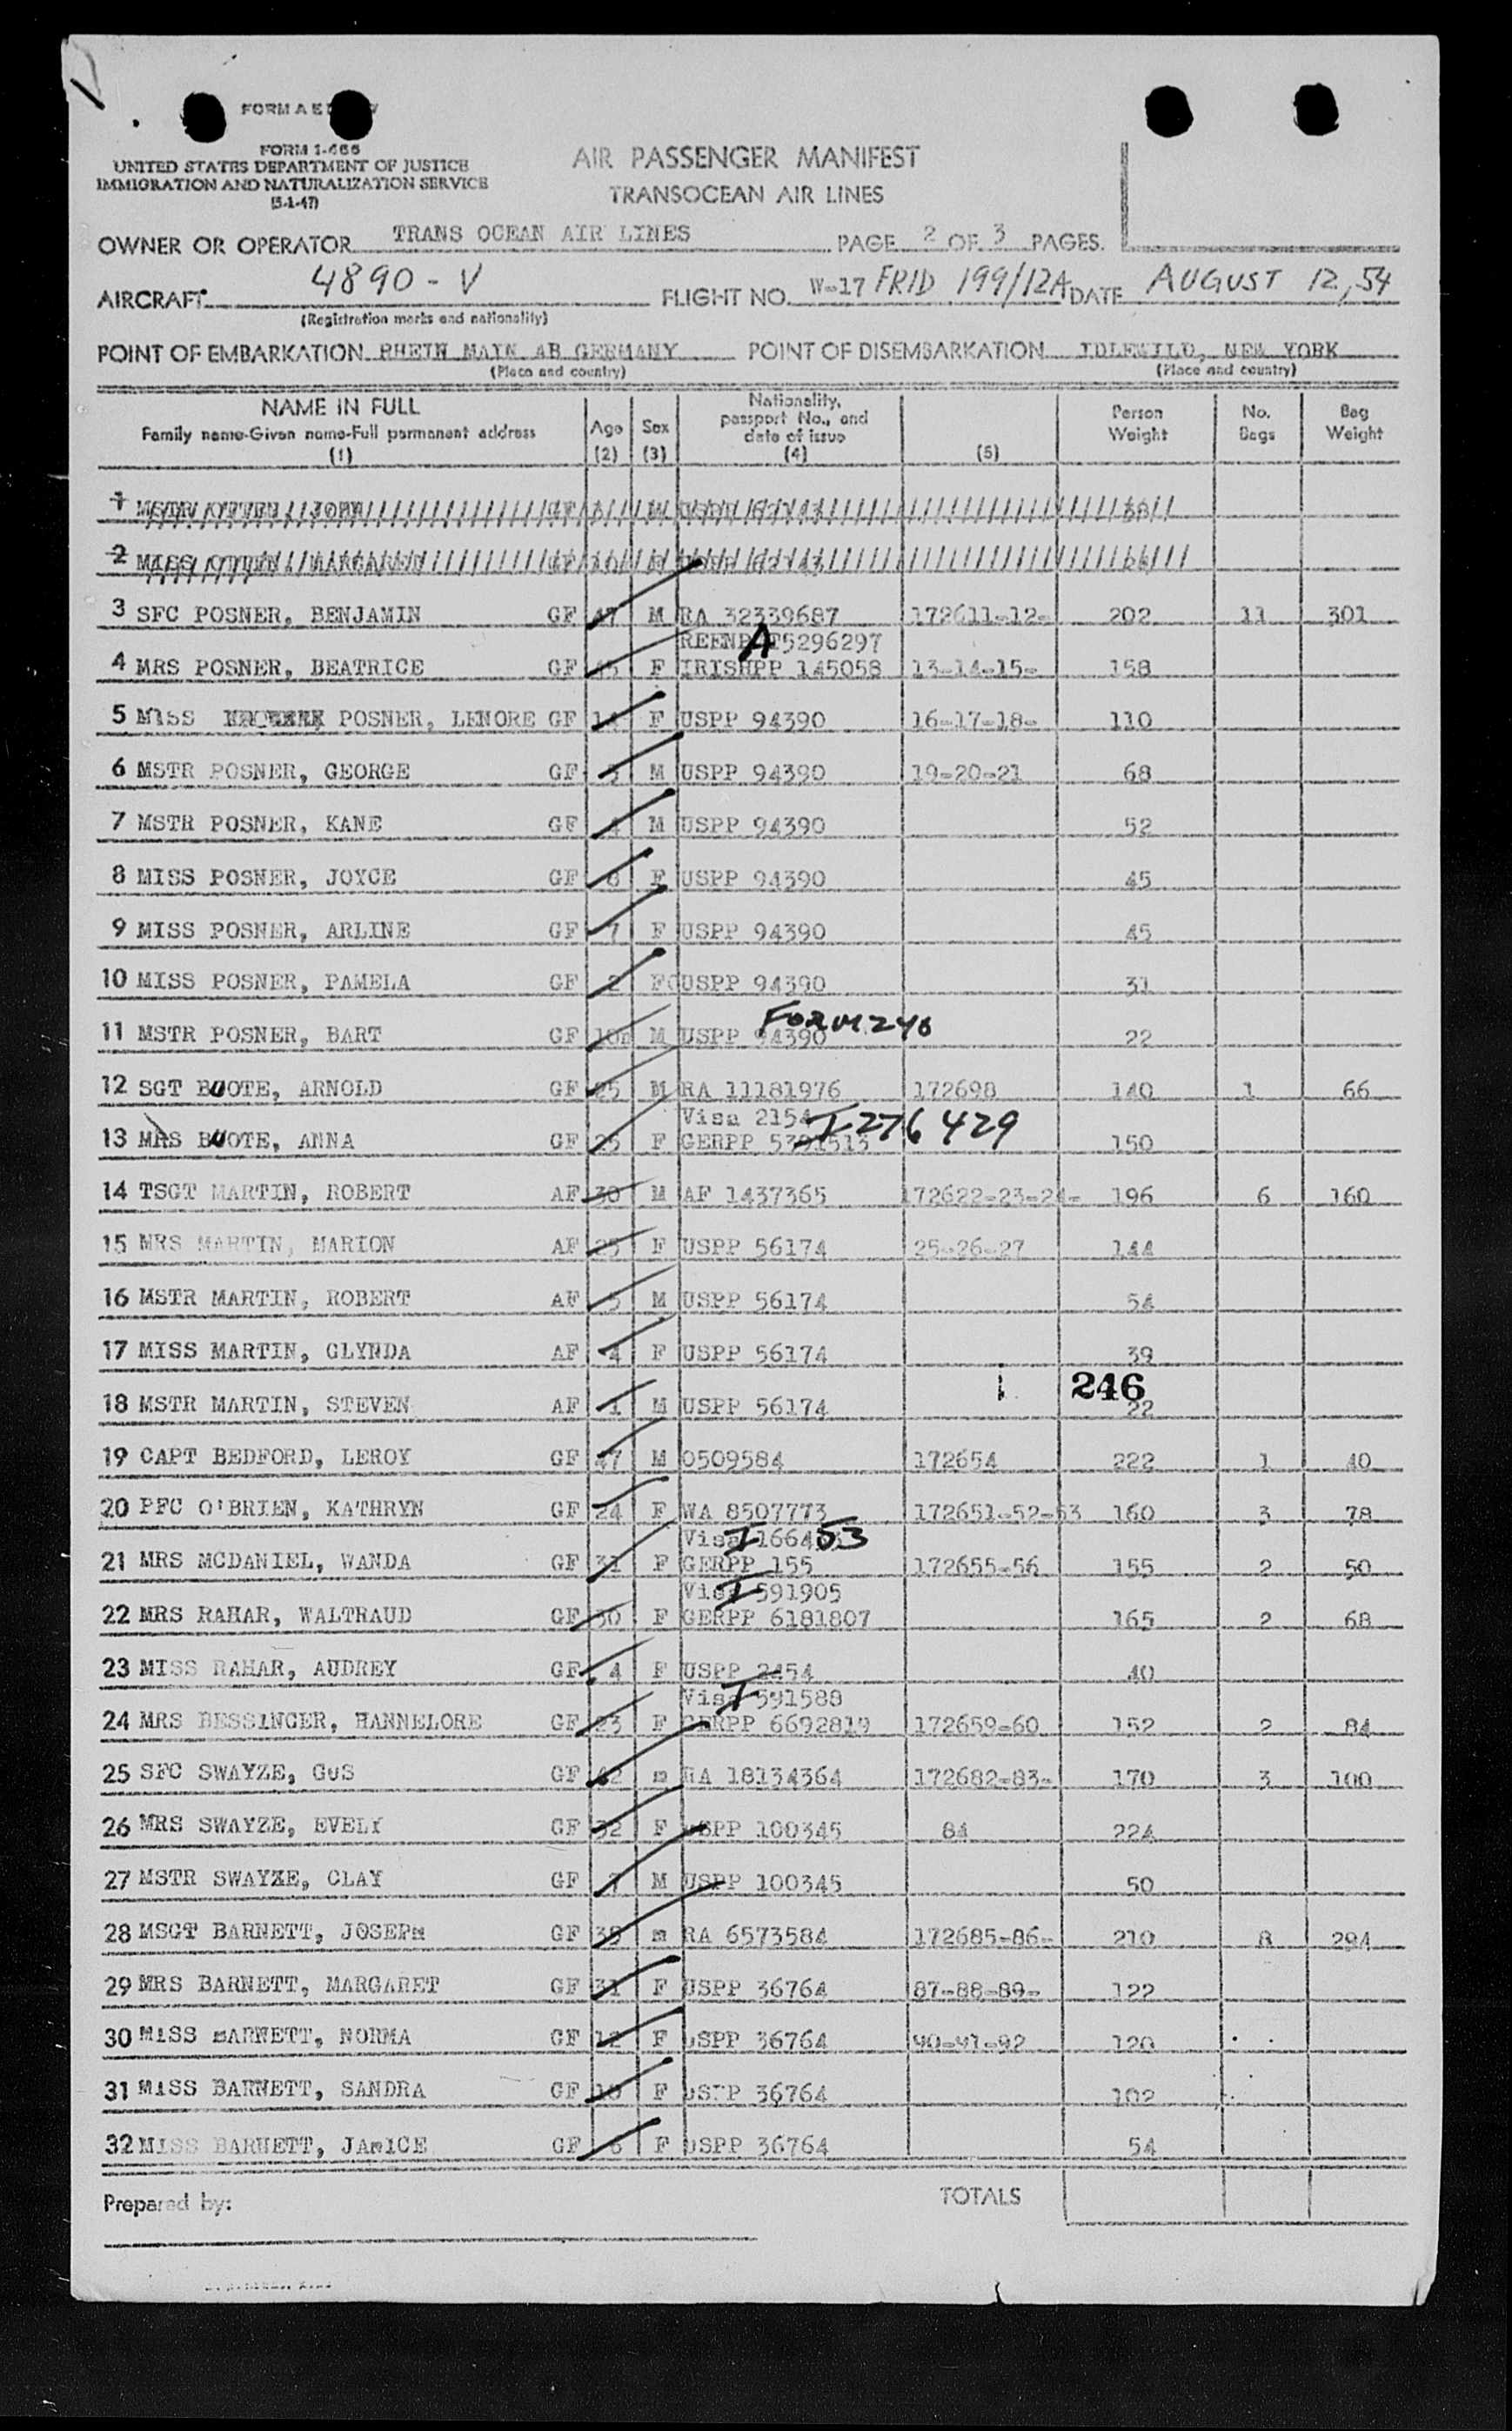 FORM I-466
UNITED STATES DEPARTMENT OF JUSTICE
IMMIGRATION AND NATURALIZATION SERVICE
(5-1-47)
AIR PASSENGER MANIFEST
TRANSOCEAN AIR LINES
OWNER OR OPERATOR TRANS OCEAN AIR LINES PAGE 2 OF 3 PAGES.
AIRCRAFT 4890-V FLIGHT NO. W-17 FRID 199/12A DATE AUGUST 12, 54
(Registration marks and nationality)
POINT OF EMBARKATION RHEIN MAIN AB GERMANY POINT OF DISEMBARKATION IDLEWILD, NEW YORK
(Place and country) (Place and country)
NAME IN FULL
Family name-Given name-Full permanent address
(1)
Age
(2)
Sex
(3)
Nationality,
passport No., and
date of issue
(4)
(5)
Person
Weight
No.
Bags
Bag
Weight
1
2
3 SFC POSNER, BENJAMIN GF 47 M RA 32339687 172611-12- 202 11 301
A T5296297
4 MRS POSNER, BEATRICE GF F IRISHPP 145058 13-14-15- 158
5 MISS POSNER, LENORE GF 14 F USPP 94390 16-17-18- 110
6 MSTR POSNER, GEORGE GF M USPP 94390 19-20-21 68
7 MSTR POSNER, KANE GF 4 M USPP 94390 52
8 MISS POSNER, JOYCE GF F USPP 94390 45
9 MISS POSNER, ARLINE GF 7 F USPP 94390 45
10 MISS POSNER, PAMELA GF 2 F USPP 94390 31
FORM 246
11 MSTR POSNER, BART GF 10m M USPP 94390 22
12 SGT BUOTE, ARNOLD GF 25 M RA 11181976 172698 140 1 66
Visa 2154 I276429
13 MRS BUOTE, ANNA GF 25 F GERPP 5391513 150
14 TSGT MARTIN, ROBERT AF 30 M AF 1437365 172622-23-24- 196 6 160
15 MRS MARTIN, MARION AF 25 F USPP 56174 25-26-27 144
16 MSTR MARTIN, ROBERT AF 5 M USPP 56174 54
17 MISS MARTIN, GLYNDA AF 4 F USPP 56174 39
246
18 MSTR MARTIN, STEVEN AF 1 M USPP 56174 22
19 CAPT BEDFORD, LEROY GF 47 M O509584 172654 222 1 40
20 PFC O'BRIEN, KATHRYN GF 24 F WA 8507773 172651-52-53 160 3 78
Visa I 166453
21 MRS MCDANIEL, WANDA GF 31 F GERPP 155 172655-56 155 2 50
Visa I 591905
22 MRS RAHAR, WALTRAUD GF 30 F GERPP 6181807 165 2 68
23 MISS RAHAR, AUDREY GF 4 F USPP 2454 40
Visa I 591588
24 MRS BESSINGER, HANNELORE GF 23 F GERPP 6692819 172659-60 152 2 84
25 SFC SWAYZE, GUS GF 42 m RA 18134364 172682-83- 170 3 100
26 MRS SWAYZE, EVELY GF 32 F USPP 100345 84 224
27 MSTR SWAYZE, CLAY GF 7 M USPP 100345 50
28 MSGT BARNETT, JOSEPH GF m RA 6573584 172685-86- 210 8 294
29 MRS BARNETT, MARGARET GF 31 F USPP 36764 87-88-89- 122
30 MISS BARNETT, NORMA GF 12 F USPP 36764 90-91-92 120
31 MISS BARNETT, SANDRA GF 10 F USPP 36764 102
32 MISS BARNETT, JANICE GF 6 F USPP 36764 54
Prepared by: TOTALS